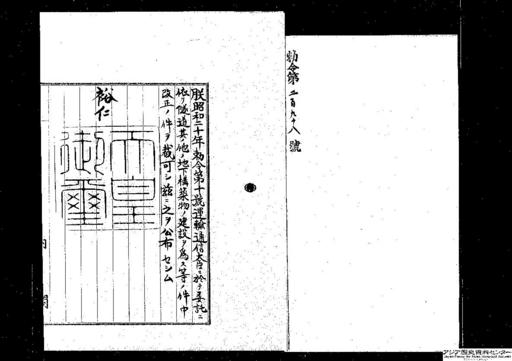 勅令第二百六十八號
朕昭和二十年勅令第十號運輸通信大臣ニ於テ委託ニ
依リ隧道其他ノ地下構築物ノ建設ヲ爲ス等ノ件中
改正ノ件ヲ裁可シ茲ニ之ヲ公布セシム
裕仁
天皇
御璽
内
閣
アジア歴史資料センター